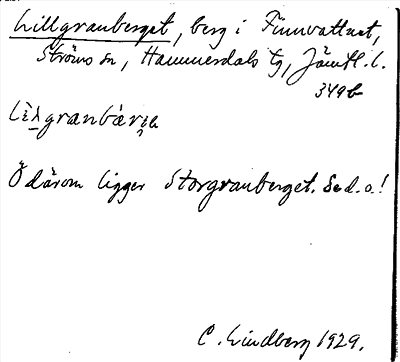 Lillgranberget, berg i Finnvattnet,
Ströms sn, Hammerdals tg, Jämtl. l.
349b
Ö därom ligger Storgranberget. Se d. o.!
C. Lindberg 1929.